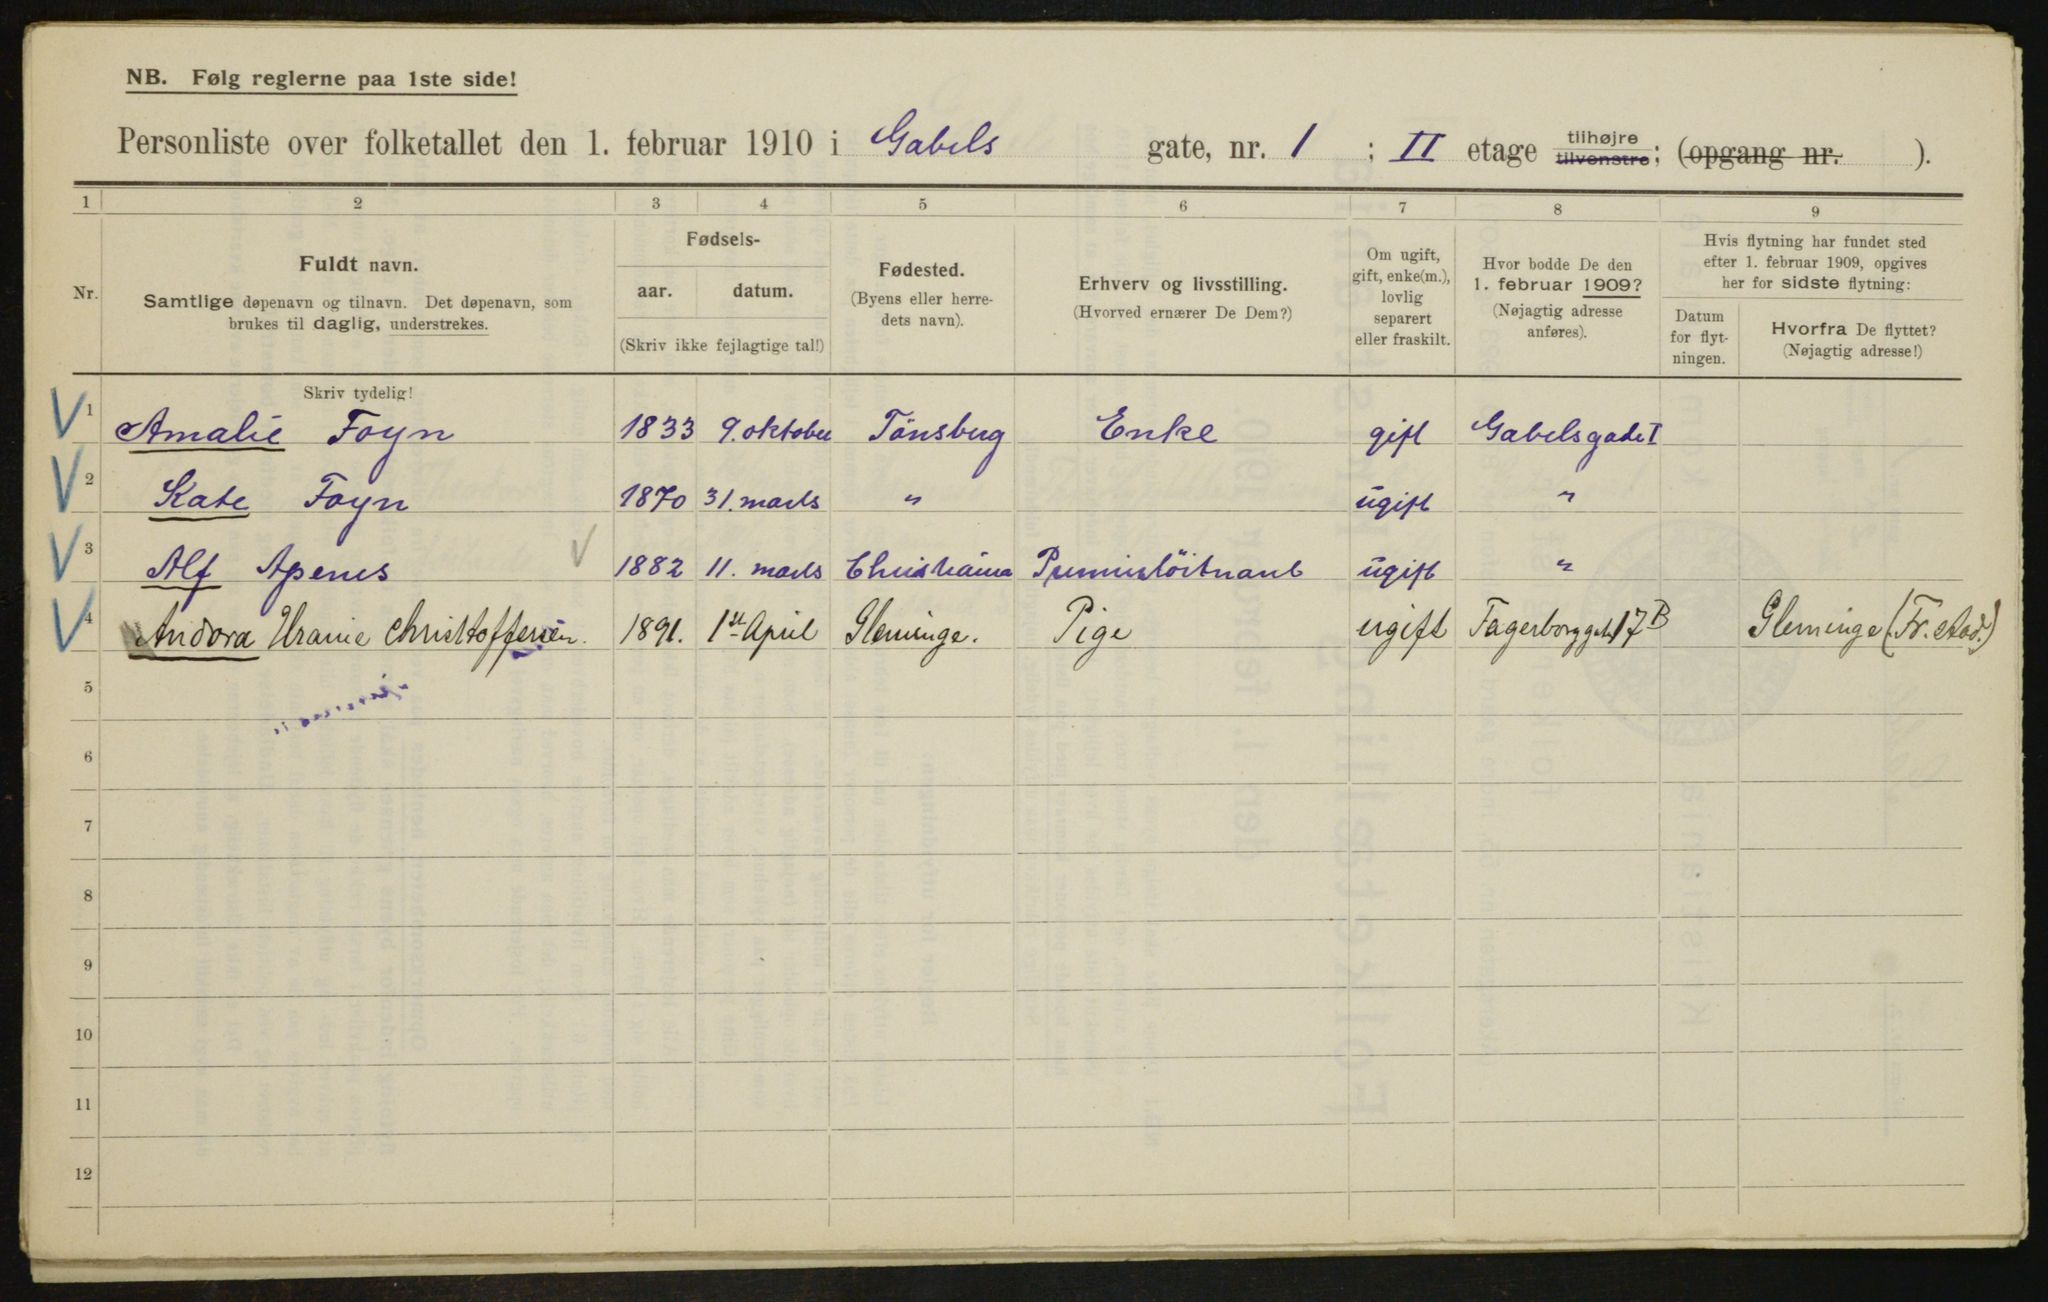 NB. Følg reglerne paa 1ste side!
Personliste over folketallet den 1. februar 1910 i Gabels gate, nr. 1 ; II etage tilhøjre tilvenstre; (opgang nr. ).
1 2 3 4 5 6 7 8 9
Nr.
Fuldt navn.
Samtlige døpenavn og tilnavn. Det døpenavn, som
brukes til daglig, understrekes.
Fødsels-
aar. datum.
(Skriv ikke fejlagtige tal!)
Fødested.
(Byens eller herre-
dets navn).
Erhverv og livsstilling.
(Hvorved ernærer De Dem?)
Om ugift,
gift, enke(m.),
lovlig
separert
eller fraskilt.
Hvor bodde De den
1. februar 1909?
(Nøjagtig adresse
anføres).
Hvis flytning har fundet sted
efter 1. februar 1909, opgives
her for sidste flytning:
Datum
for flyt-
ningen.
Hvorfra De flyttet?
(Nøjagtig adresse!)
Skriv tydelig!
1 Amalie Foyn 1833 9. oktober Tönsberg Enke gift Gabelsgade I
2 Kate Foyn 1870 31. marts " ugift "
3 Alf Apenes 1882 11. marts Christiania Premierlöitnant ugift "
4 Andora Uranie Christoffersen. 1891. 1ste April Gleminge. Pige ugift Fagerborggt. 17B Gleminge (Fr.stad.)
5
6
7
8
9
10
11
12